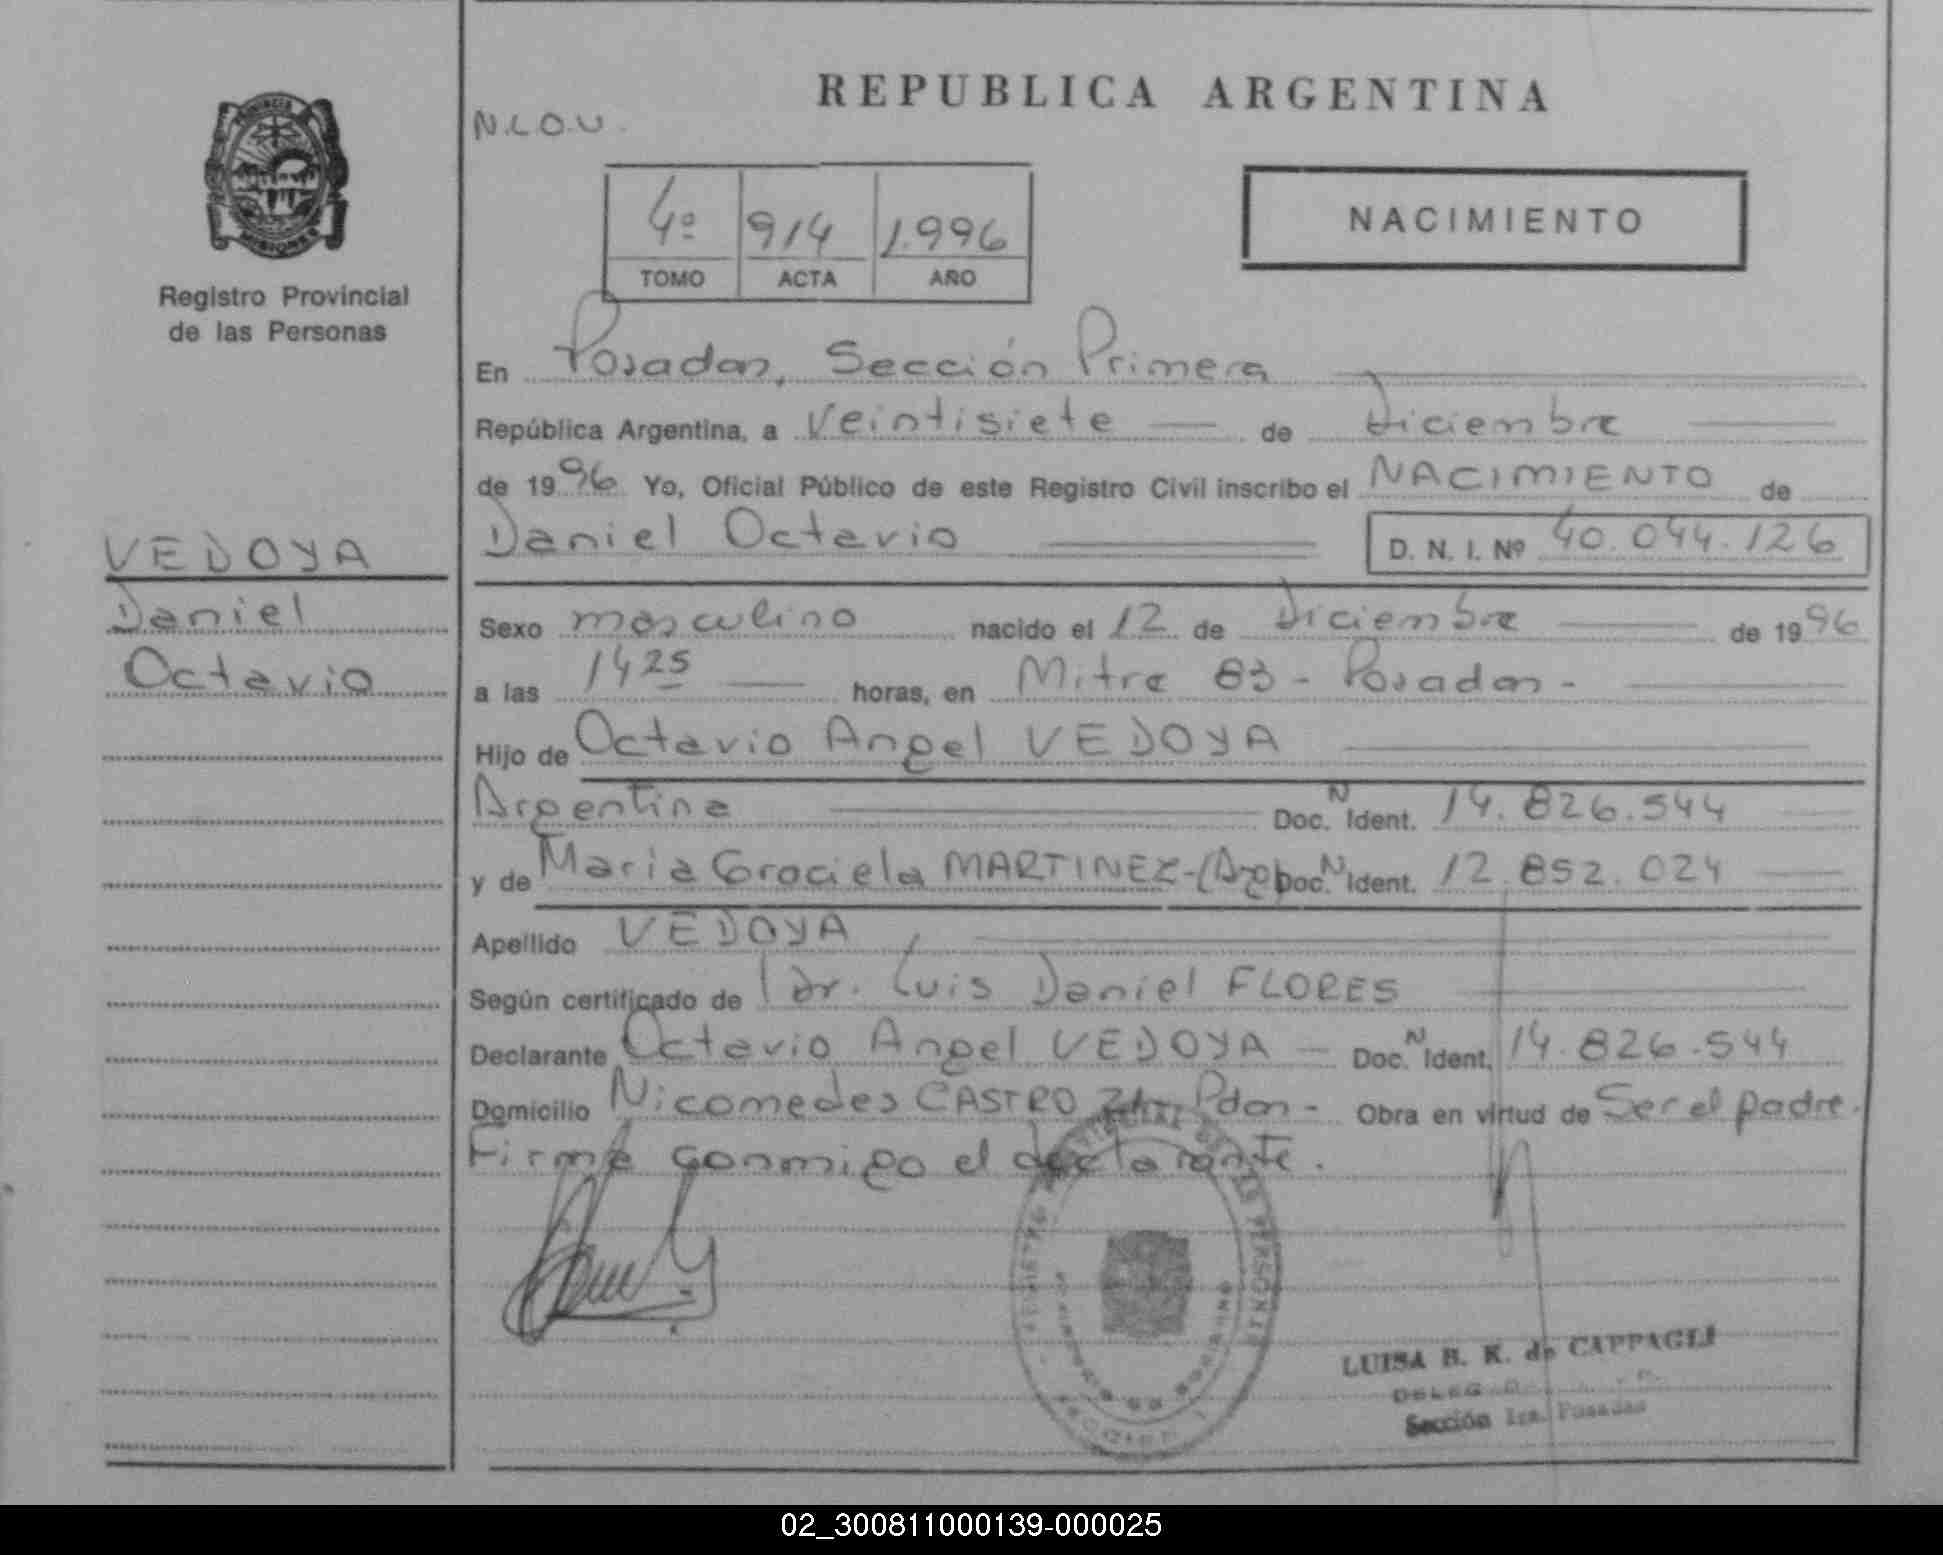 REPUBLICA ARGENTINA
N.L.O.U.
4º 914 1.996
TOMO ACTA AÑO
NACIMIENTO
PROVINCIA
MISIONES
Registro Provincial
de las Personas
VEDOYA
Daniel
Octavio
En Posadas, Sección Primera
República Argentina, a Veintisiete de Diciembre
de 1996 Yo, Oficial Público de este Registro Civil inscribo el NACIMIENTO de
Daniel Octavio D. N. I. Nº 40.044.126
Sexo masculino nacido el 12 de Diciembre de 1996
a las 14 25 horas, en Mitre 83 - Posadas -
Hijo de Octavio Angel VEDOYA
Argentina Doc. N Ident. 14.826.544
y de Maria Graciela MARTINEZ-(Arg) Doc. N Ident. 12.852.024
Apellido VEDOYA
Según certificado de Dr. Luis Daniel FLORES
Declarante Octavio Angel VEDOYA - Doc. N Ident. 14.826.544
Domicilio Nicomedes CASTRO Pdas - Obra en virtud de Ser el padre.
Firma conmigo el declarante.
LUISA B. K. de CAPPAGLI
Sección 1ra. Posadas
02_300811000139-000025